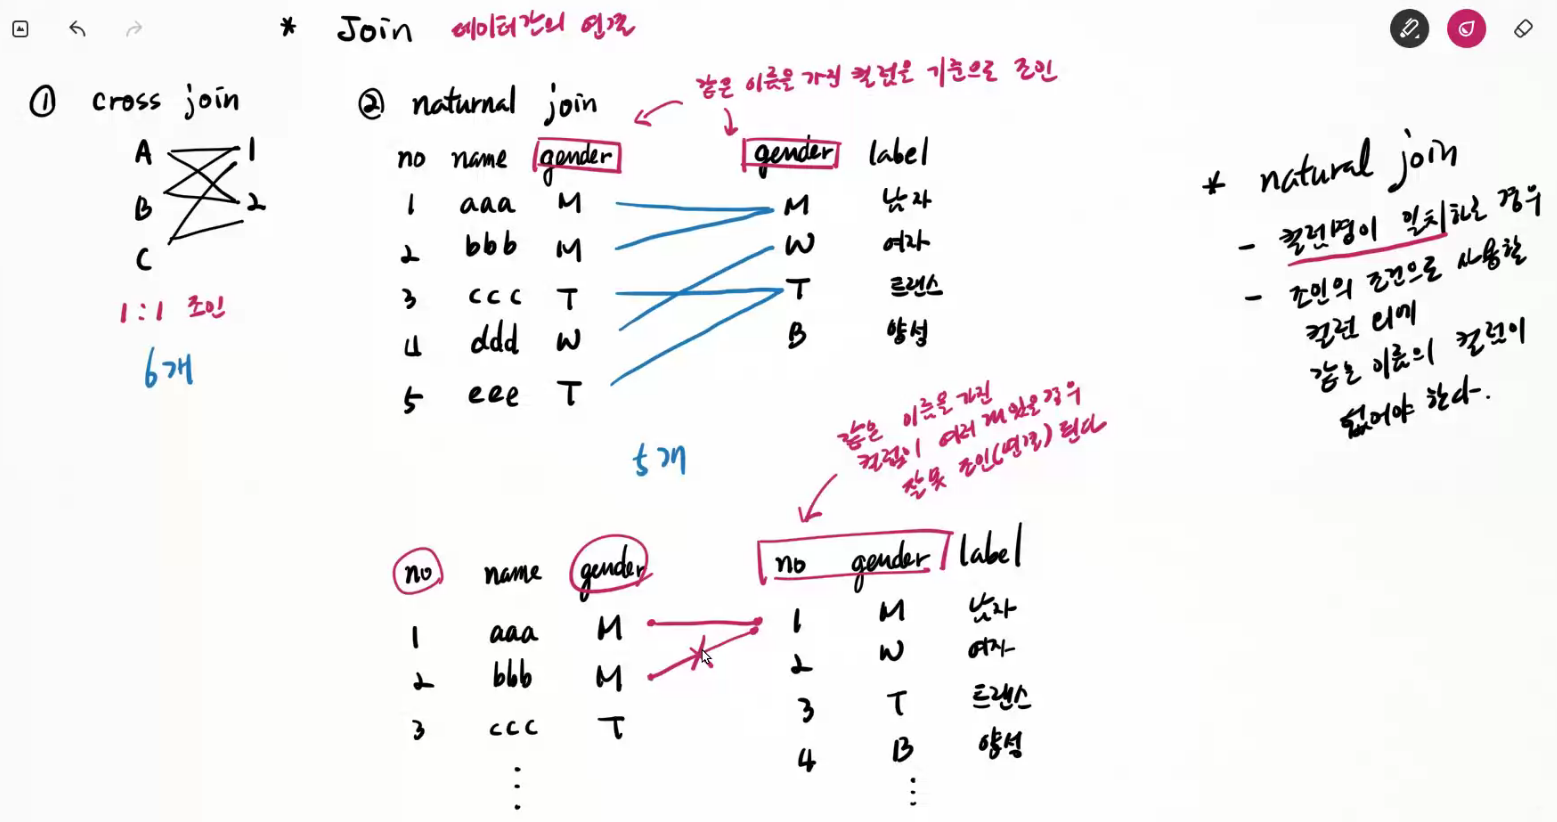 * Join 데이터간의 연결
① cross join
A 1
B 2
C
1:1 조인
6개
② naturnal join
같은 이름을 가진 컬럼은 기준으로 조인
no name gender
1 aaa M
2 bbb M
3 ccc T
4 ddd W
5 eee T
gender label
M 남자
W 여자
T 트랜스
B 양성
5개
* natural join
- 컬럼명이 일치하는 경우
- 조인의 조건으로 사용할
컬럼 외에
같은 이름의 컬럼이
없어야 한다.
같은 이름을 가진
컬럼이 여러 개 있을 경우
잘못 조인(연결) 된다
no name gender
1 aaa M
2 bbb M
3 ccc T
no gender label
1 M 남자
2 W 여자
3 T 트랜스
4 B 양성